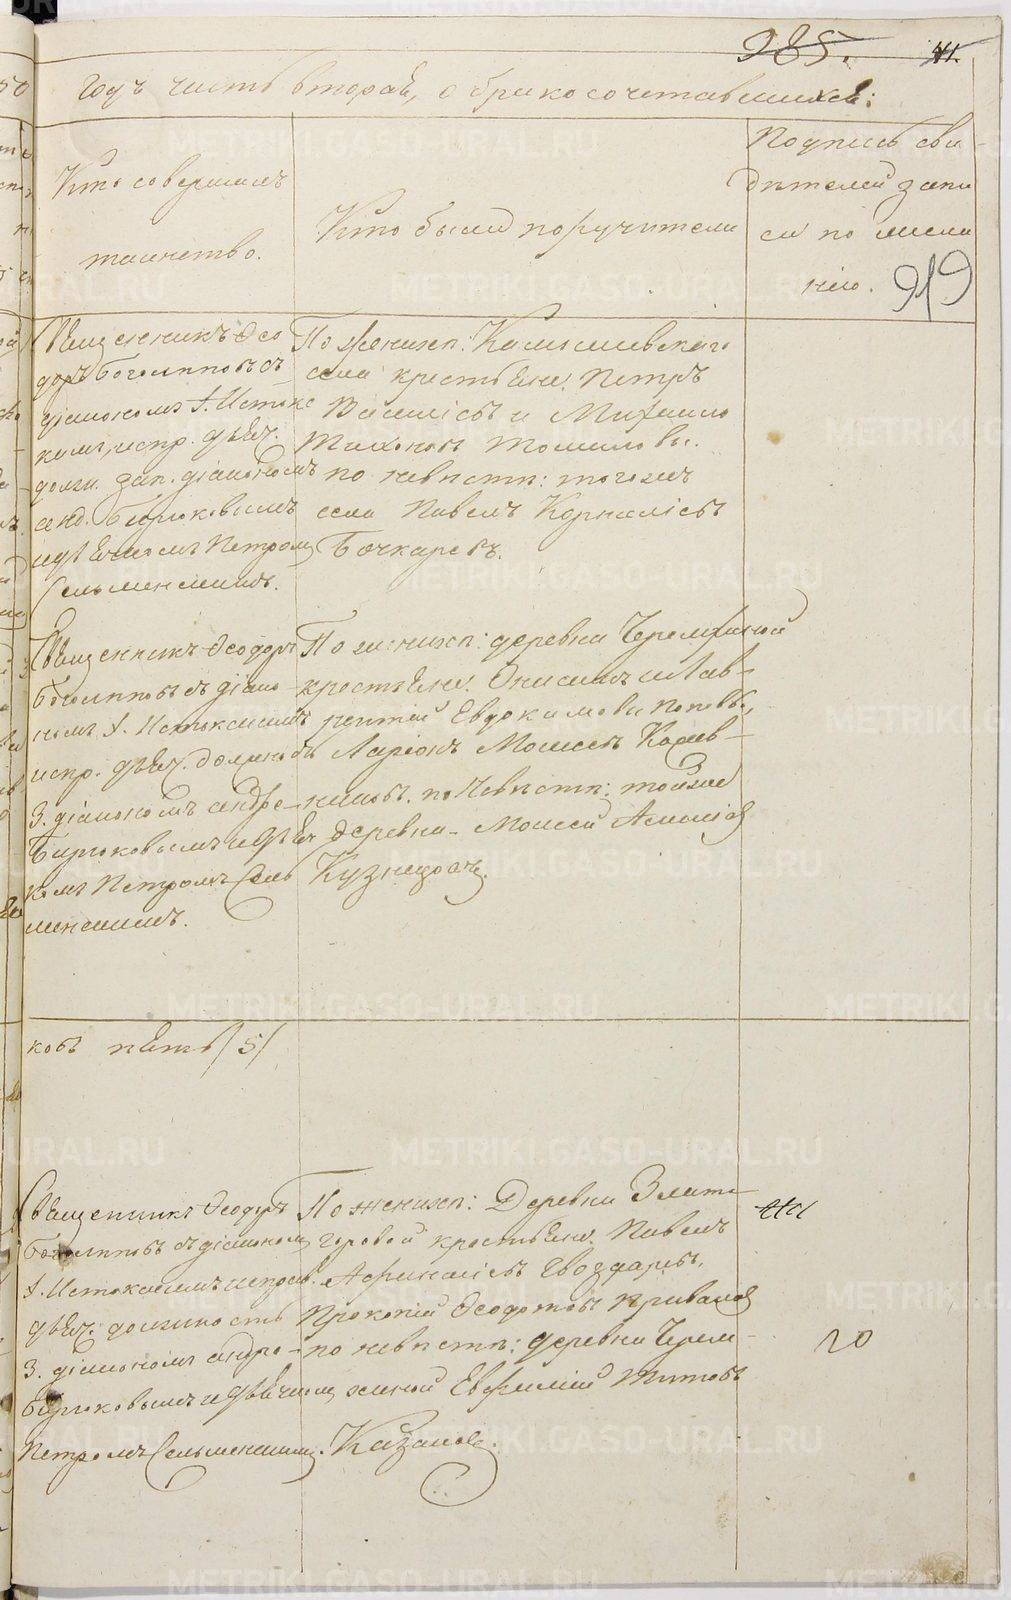 285. 41.
годъ часть вторая, о бракосочетавшихся:
Кто совершалъ
таинство.
Кто были поручители
Подпись сви
дѣтелей запи
си по жела
нію.
919
Священникъ Ѳео
доръ Боголѣповъ съ
діакономъ І. Исток
скимъ, испр. дьяч.
должн. зап. діакономъ
анд. Бирюковымъ
и дьячкомъ Петромъ
Сельменскимъ.
По женихѣ: Камышевскаго
села крестьяне. Петръ
Василіевъ и Михаило
Тихоновъ Томиловы.
по невѣстѣ: тогожъ
села Павелъ Корниліевъ
Бочкаревъ.
Священникъ Ѳеодоръ
Боголѣповъ съ діако-
номъ І. Истокскимъ
испр. дьяч. должность
З. діакономъ андре-
Бирюковымъ и дьяч
комъ Петромъ Сель
менскимъ.
По женихѣ: деревни Черемхиной
крестьяне. Онисимъ и Лав-
рентій Евдокимовы Поповы,
Ларіонъ Моисеевъ
по невѣстѣ: тойже
деревни Моисей
Кузнецовъ.
ковъ пять /5/
Священникъ Ѳеодоръ
Боголѣповъ съ діакономъ
І. Истокскимъ исправ.
дьяч. должность
З. діакономъ андре-
Бирюковымъ и дьячкомъ
Петромъ Сельменскимъ.
По женихѣ: Деревни Злато
горовой крестьяне. Павелъ
Афанасіевъ Гвоздаревъ,
Прокопій Ѳеодотовъ
по невѣстѣ: деревни Черем-
хиной Евфимій Титовъ
Казаковъ.
20
METRIKI.GASO-URAL.RU